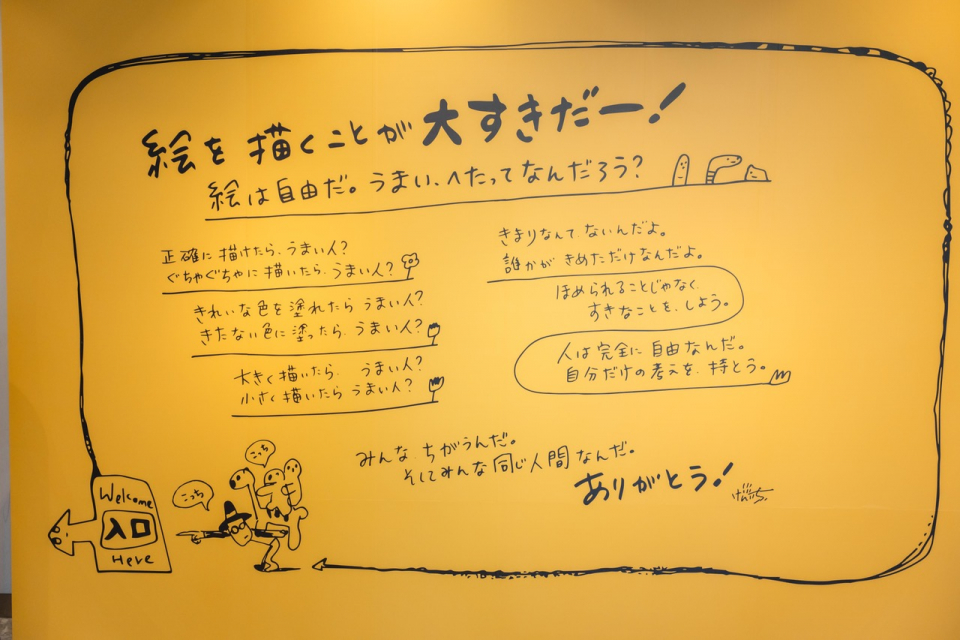 絵を描くことが大すきだー!
絵は自由だ。うまい、へたってなんだろう?
正確に描けたら、うまい人?
ぐちゃぐちゃに描いたら、うまい人?
きれいな色を塗れたらうまい人?
きたない色に塗ったら、うまい人?
大きく描いたら、うまい人?
小さく描いたらうまい人?
きまりなんて、ないんだよ。
誰かがきめただけなんだよ。
ほめられることじゃなく、
すきなことを、しよう。
人は完全に自由なんだ。
自分だけの考えを、持とう。
みんな、ちがうんだ。
そしてみんな同じ人間なんだ。
ありがとう!
こっち
こっち
Welcome
入口
Here